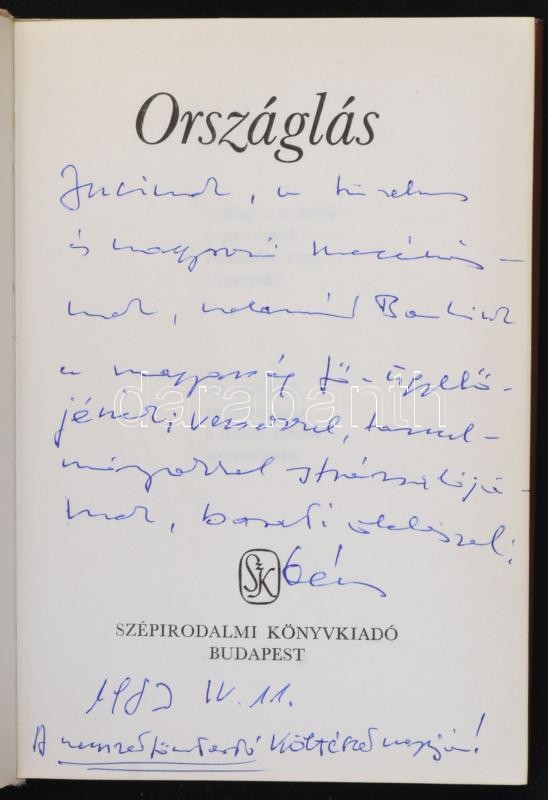 Országlás
Jucinak, a türelmes
és nagyszerű mecénás-
nak, valamint Bankinak
a magyarság fő-ügyelő-
jének; versekkel, tanul-
mányokkal strázsálójá-
nak, baráti öleléssel:
Géza
SzK
SZÉPIRODALMI KÖNYVKIADÓ
BUDAPEST
1983 IV. 11.
A nemzetfönntartó Költészet napján!
darabanth